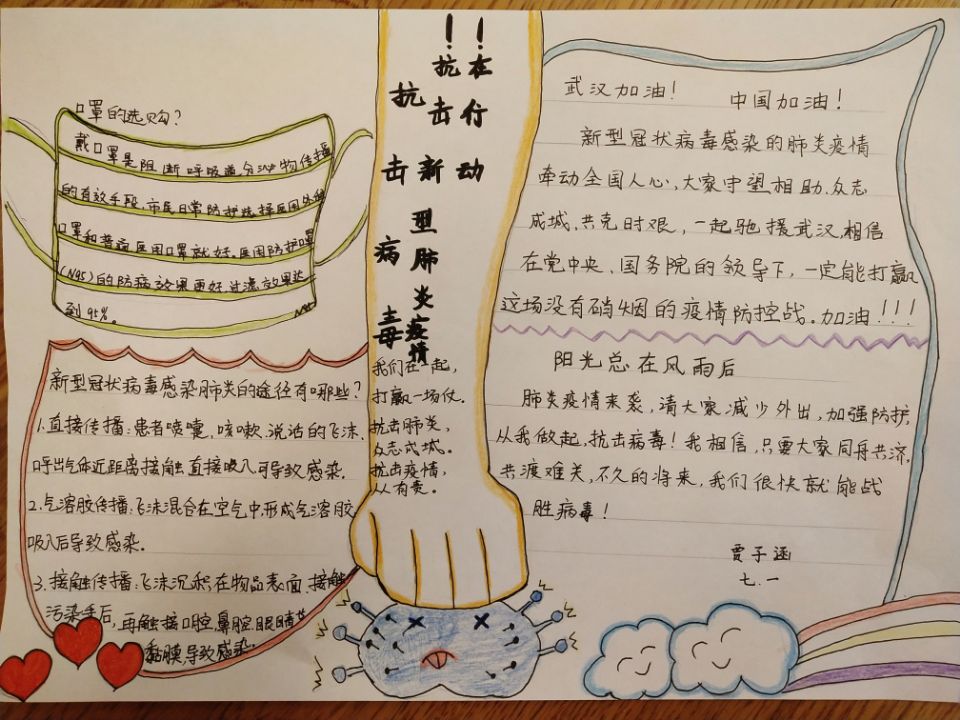 口罩的选购?
戴口罩是阻断呼吸道分泌物传播
的有效手段,市民日常防护选择医用外科
口罩和普通医用口罩就好,医用防护口罩
(N95)的防病效果更好,过滤效果达
到95%。
新型冠状病毒感染肺炎的途径有哪些?
1.直接传播:患者喷嚏,咳嗽,说话的飞沫,
呼出气体近距离接触直接吸入可导致感染.
2.气溶胶传播:飞沫混合在空气中,形成气溶胶,
吸入后导致感染。
3.接触传播:飞沫沉积在物品表面,接触
污染手后,再触接口腔,鼻腔,眼睛等
黏膜,导致感染。
抗击病毒
抗击新型肺炎疫情!
在行动!
我们在一起,
打赢一场仗。
抗击肺炎,
众志成城。
抗击疫情,
人有责。
武汉加油! 中国加油!
新型冠状病毒感染的肺炎疫情
牵动全国人心,大家守望相助.众志
成城,共克时艰,一起驰援武汉,相信
在党中央、国务院的领导下,一定能打赢
这场没有硝烟的疫情防控战。加油!!!
阳光总在风雨后
肺炎疫情来袭,请大家减少外出,加强防护,
从我做起,抗击病毒!我相信,只要大家同舟共济,
共渡难关,不久的将来,我们很快就能战
胜病毒!
贾子涵
七.一